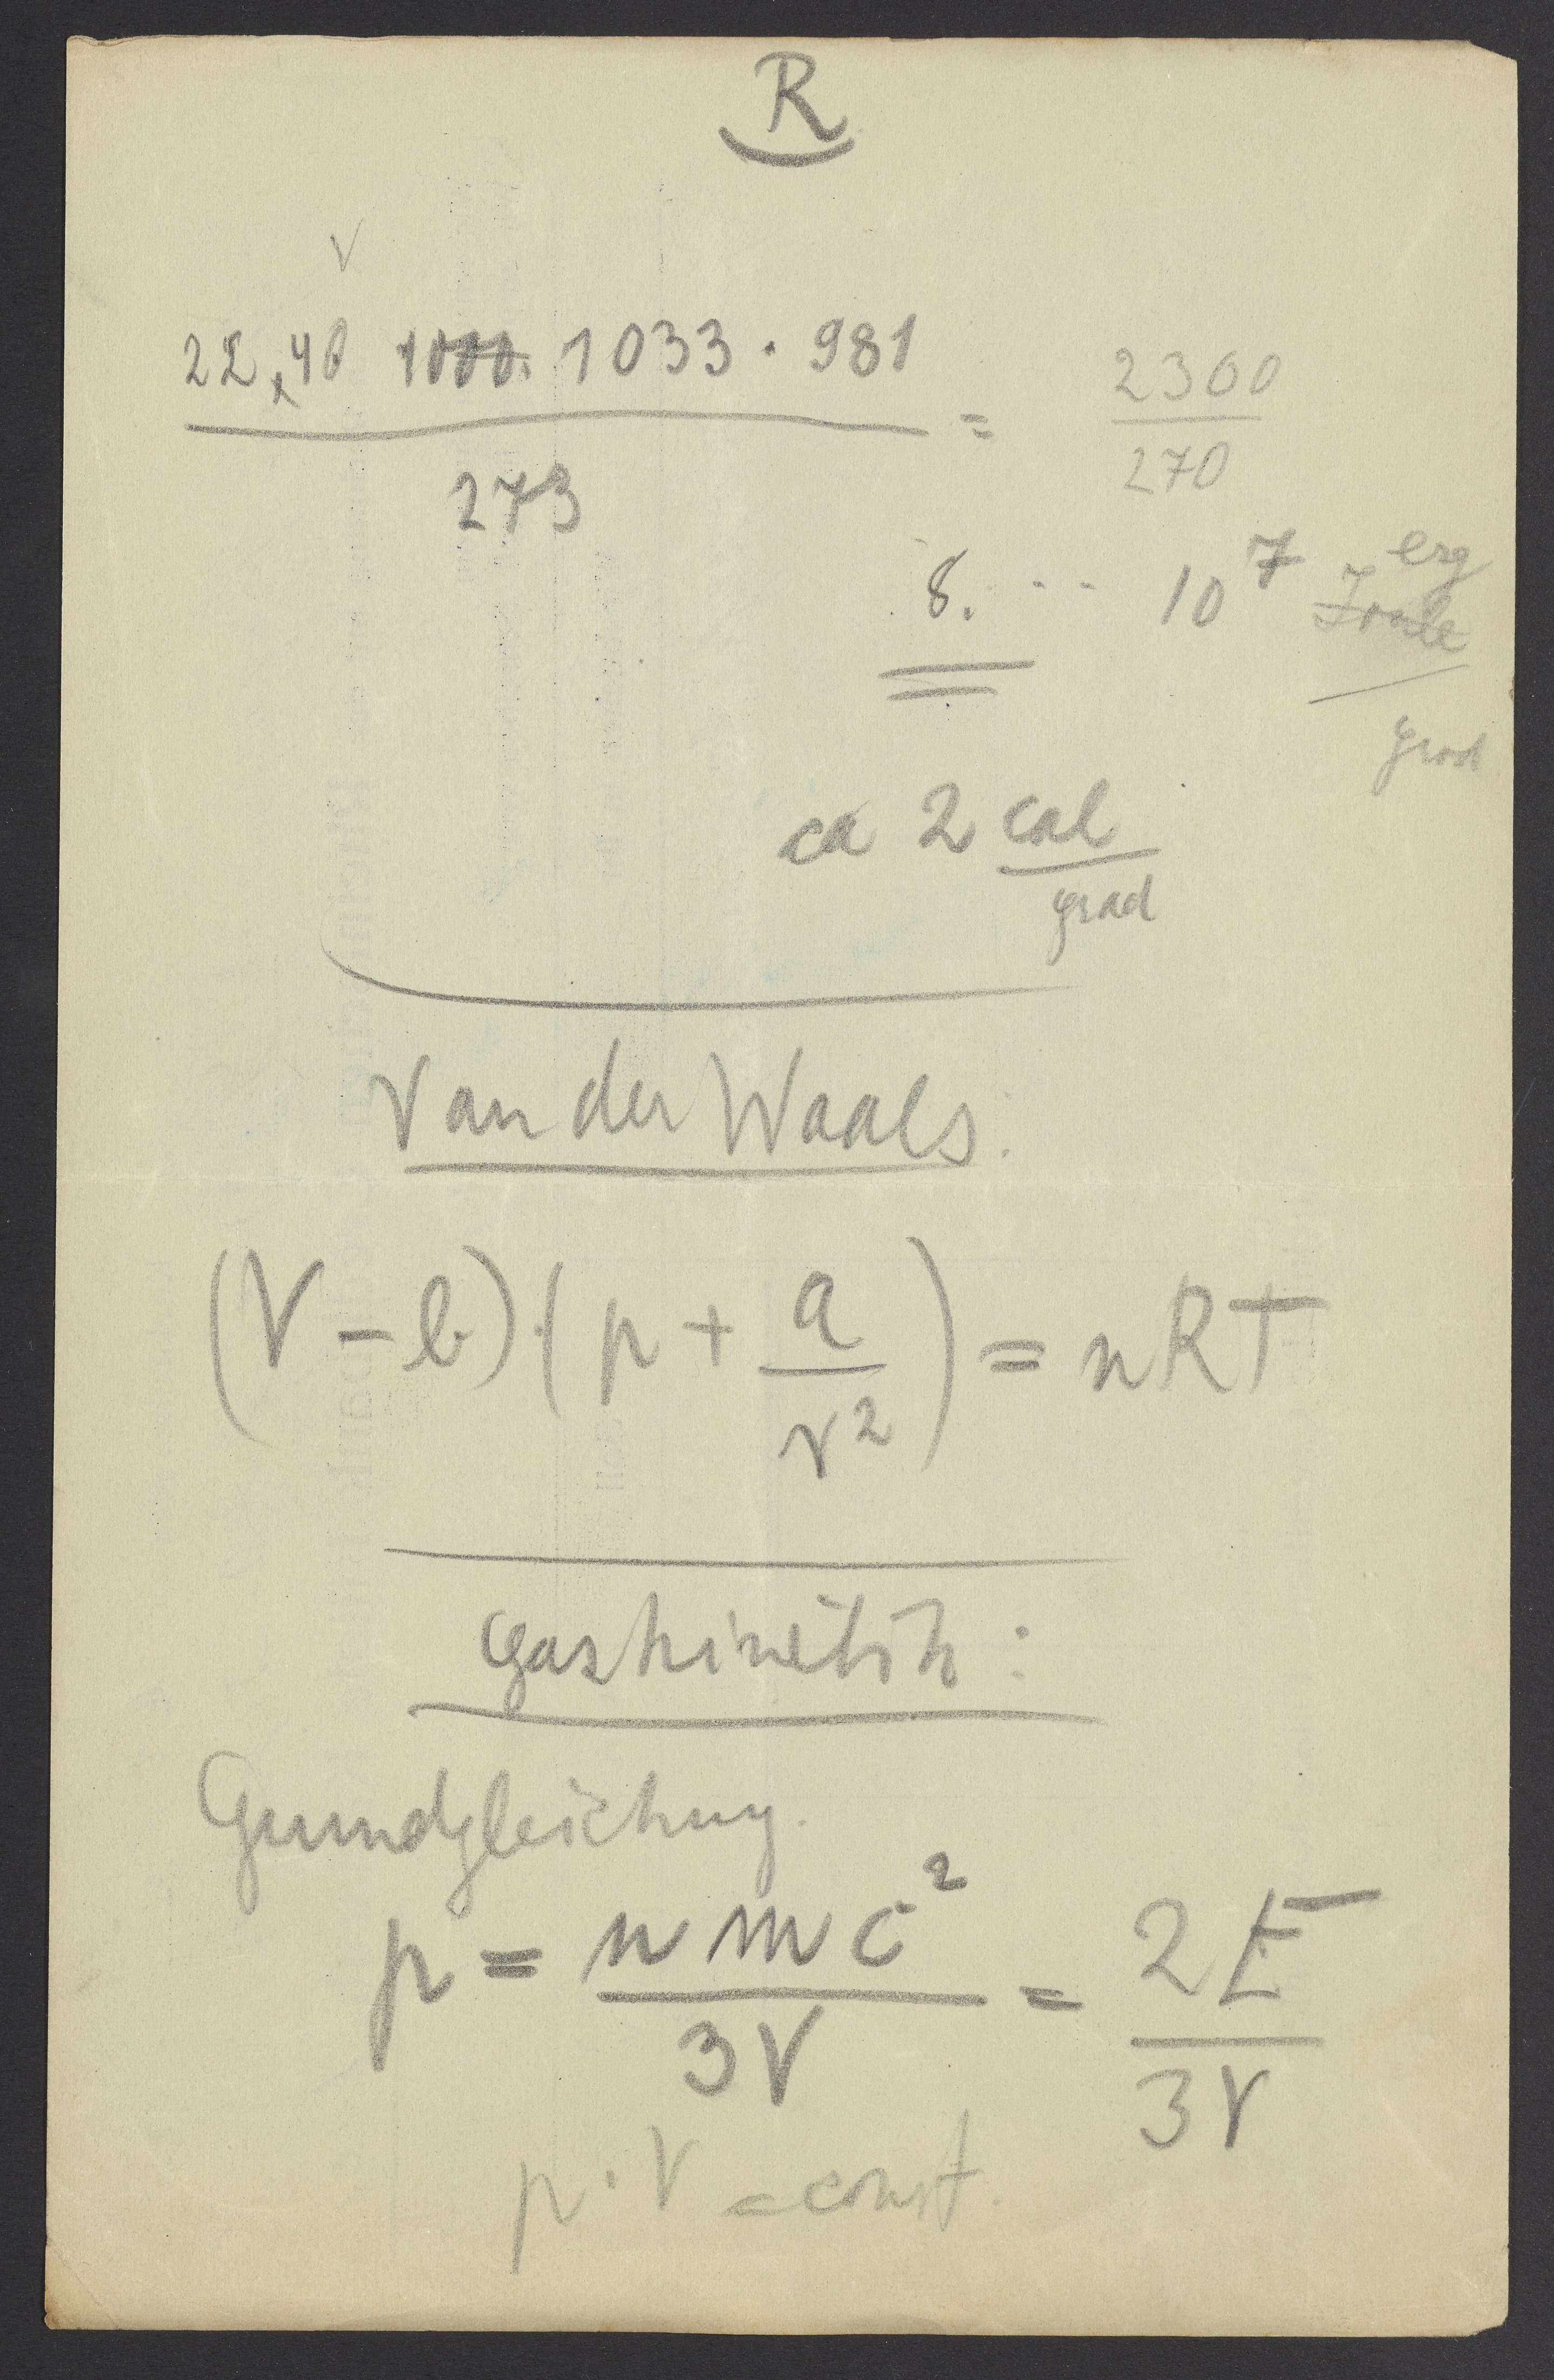 R
V
22,40 1000. 1033 · 981 = 2300
273 270
8. ... 10⁷ erg
Joule
grad
ca 2 cal
grad
Van der Waals:
(V - b) · (p + a/v²) = nRT
gaskinetik:
Grundgleichung.
p = n m c² / 3V = 2E / 3V
p · V = const.